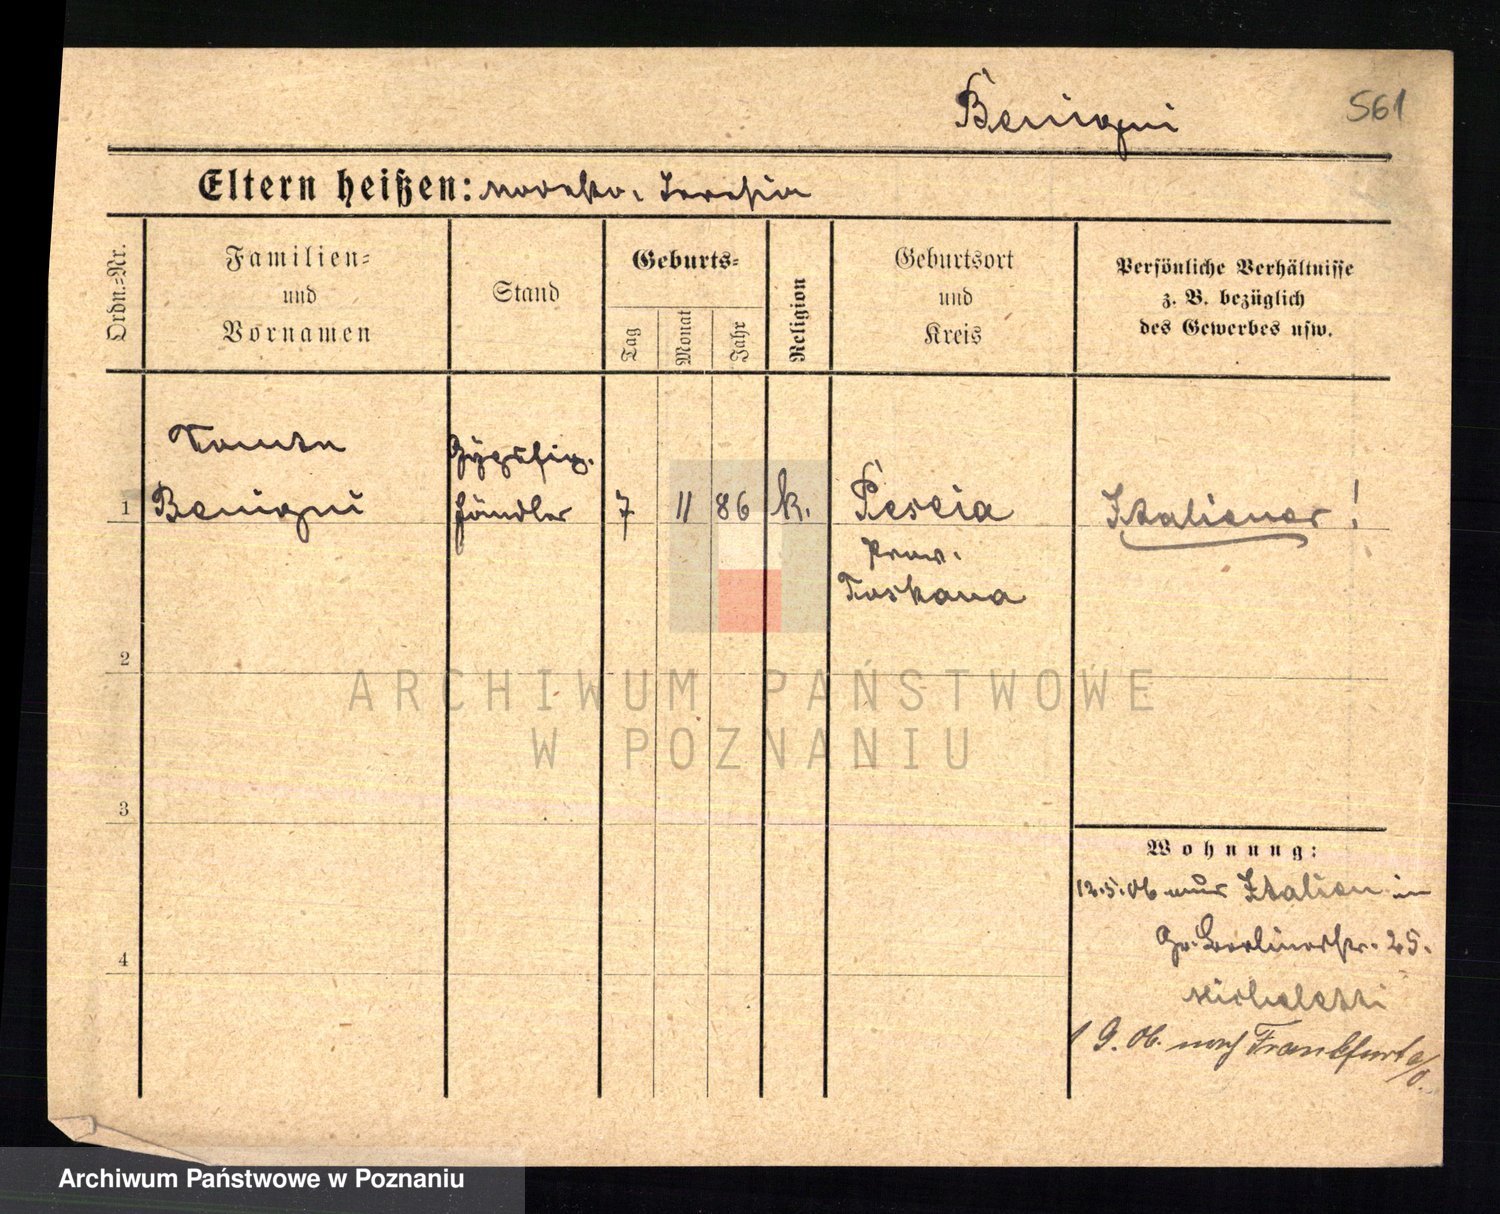 Benigni
561
Eltern heißen:
Ordn.-Nr.
Familien-
und
Vornamen
Stand
Geburts-
Tag
Monat
Jahr
Religion
Geburtsort
und
Kreis
Persönliche Verhältnisse
z. B. bezüglich
des Gewerbes usw.
1
Benigni
händler
7
11
86
k.
Pescia
Prov.
Toskana
Italiener!
2
3
4
Wohnung:
12.5.06 aus Italien in
Gr. Berlinerstr. 25.
Micheletti
1 9. 06. nach Frankfurt a/O.
ARCHIWUM PAŃSTWOWE
W POZNANIU
Archiwum Państwowe w Poznaniu